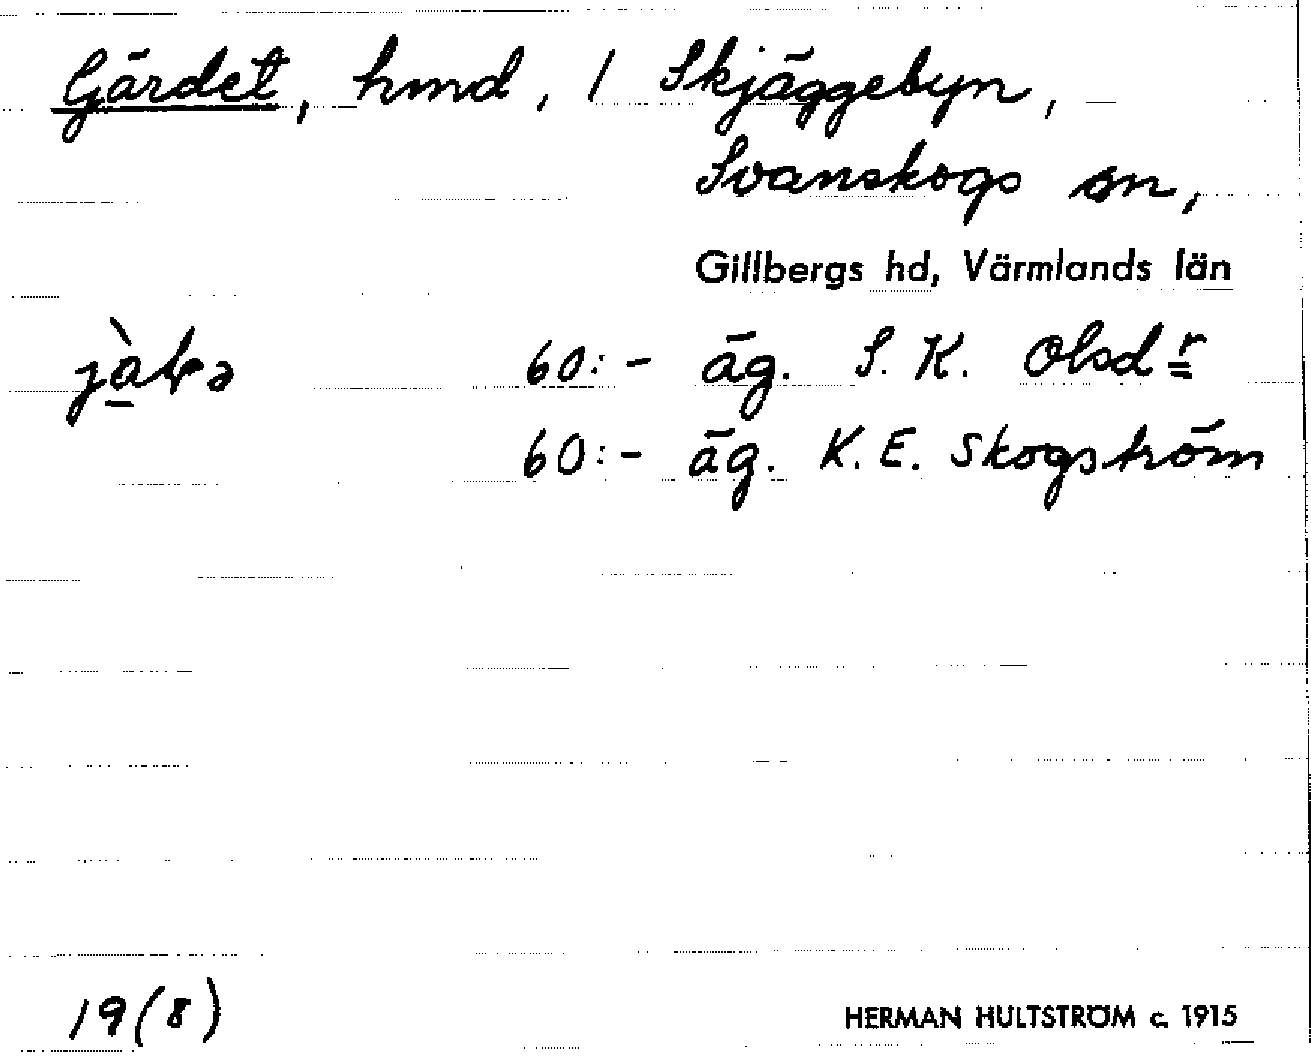 Gärdet, hmd, / Skjäggebyn,
Svanskogs sn,
Gillbergs hd, Värmlands län
60:- äg. S. K. Olsdr
60:- äg. K. E. Skogström
19(8)
HERMAN HULTSTRÖM c. 1915